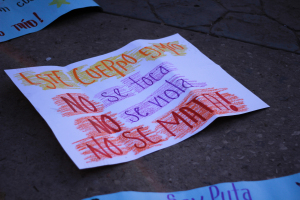 ESTE CUERPO ES MIO
NO se toca
NO se viola
NO SE MATA!!!
Soy Puta